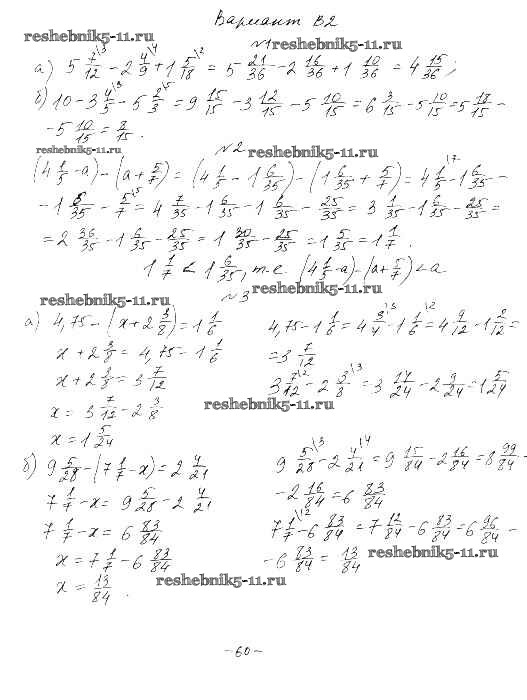 Вариант В2
reshebnik5-11.ru
№1 reshebnik5-11.ru
а) 5 7/12 - 2 4/9 + 1 5/18 = 5 21/36 - 2 16/36 + 1 10/36 = 4 15/36;
б) 10 - 3 4/5 - 5 2/3 = 9 15/15 - 3 12/15 - 5 10/15 = 6 3/15 - 5 10/15 = 5 18/15 -
- 5 10/15 = 8/15.
reshebnik5-11.ru
№2 reshebnik5-11.ru
(4 1/5 - a) - (a + 5/7) = (4 1/5 - 1 6/35) - (1 6/35 + 5/7) = 4 1/5 - 1 6/35 -
- 1 6/35 - 5/7 = 4 7/35 - 1 6/35 - 1 6/35 - 25/35 = 3 1/35 - 1 6/35 - 25/35 =
= 2 36/35 - 1 6/35 - 25/35 = 1 30/35 - 25/35 = 1 5/35 = 1 1/7.
1 1/7 < 1 6/35, т.е. (4 1/5 - a) - (a + 5/7) < a
reshebnik5-11.ru
№3 reshebnik5-11.ru
а) 4,75 - (x + 2 3/8) = 1 1/6
x + 2 3/8 = 4,75 - 1 1/6
x + 2 3/8 = 3 7/12
x = 3 7/12 - 2 3/8
x = 1 5/24
4,75 - 1 1/6 = 4 3/4 - 1 1/6 = 4 9/12 - 1 2/12 =
= 3 7/12
3 7/12 - 2 3/8 = 3 14/24 - 2 9/24 = 1 5/24
reshebnik5-11.ru
б) 9 5/28 - (7 1/7 - x) = 2 4/21
7 1/7 - x = 9 5/28 - 2 4/21
7 1/7 - x = 6 83/84
x = 7 1/7 - 6 83/84
x = 13/84.
9 5/28 - 2 4/21 = 9 15/84 - 2 16/84 = 8 99/84 -
- 2 16/84 = 6 83/84
7 1/7 - 6 83/84 = 7 12/84 - 6 83/84 = 6 96/84 -
- 6 83/84 = 13/84
reshebnik5-11.ru
reshebnik5-11.ru
- 60 -